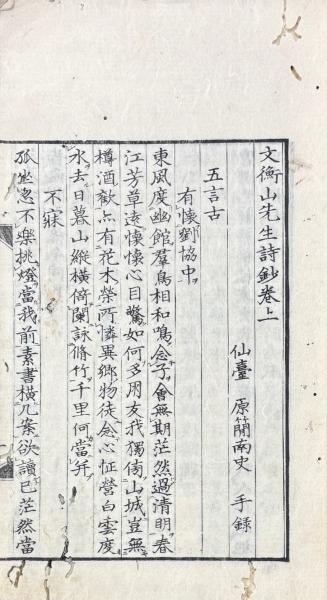 文衡山先生詩鈔卷上
仙臺 原簡南史 手錄
五言古
有懷劉協中
東風度幽館羣鳥相和鳴念子會無期茫然過清明春
江芳草遠懷懷心目驚如何多朋友我獨倚山城豈無
樽酒歡亦有花木榮所懷異鄉物徒念心怔營白雲度
水去日暮山縱橫倚闌詠脩竹千里何當并
不寐
孤坐忽不樂挑燈當我前素書橫几案欲讀已茫然當